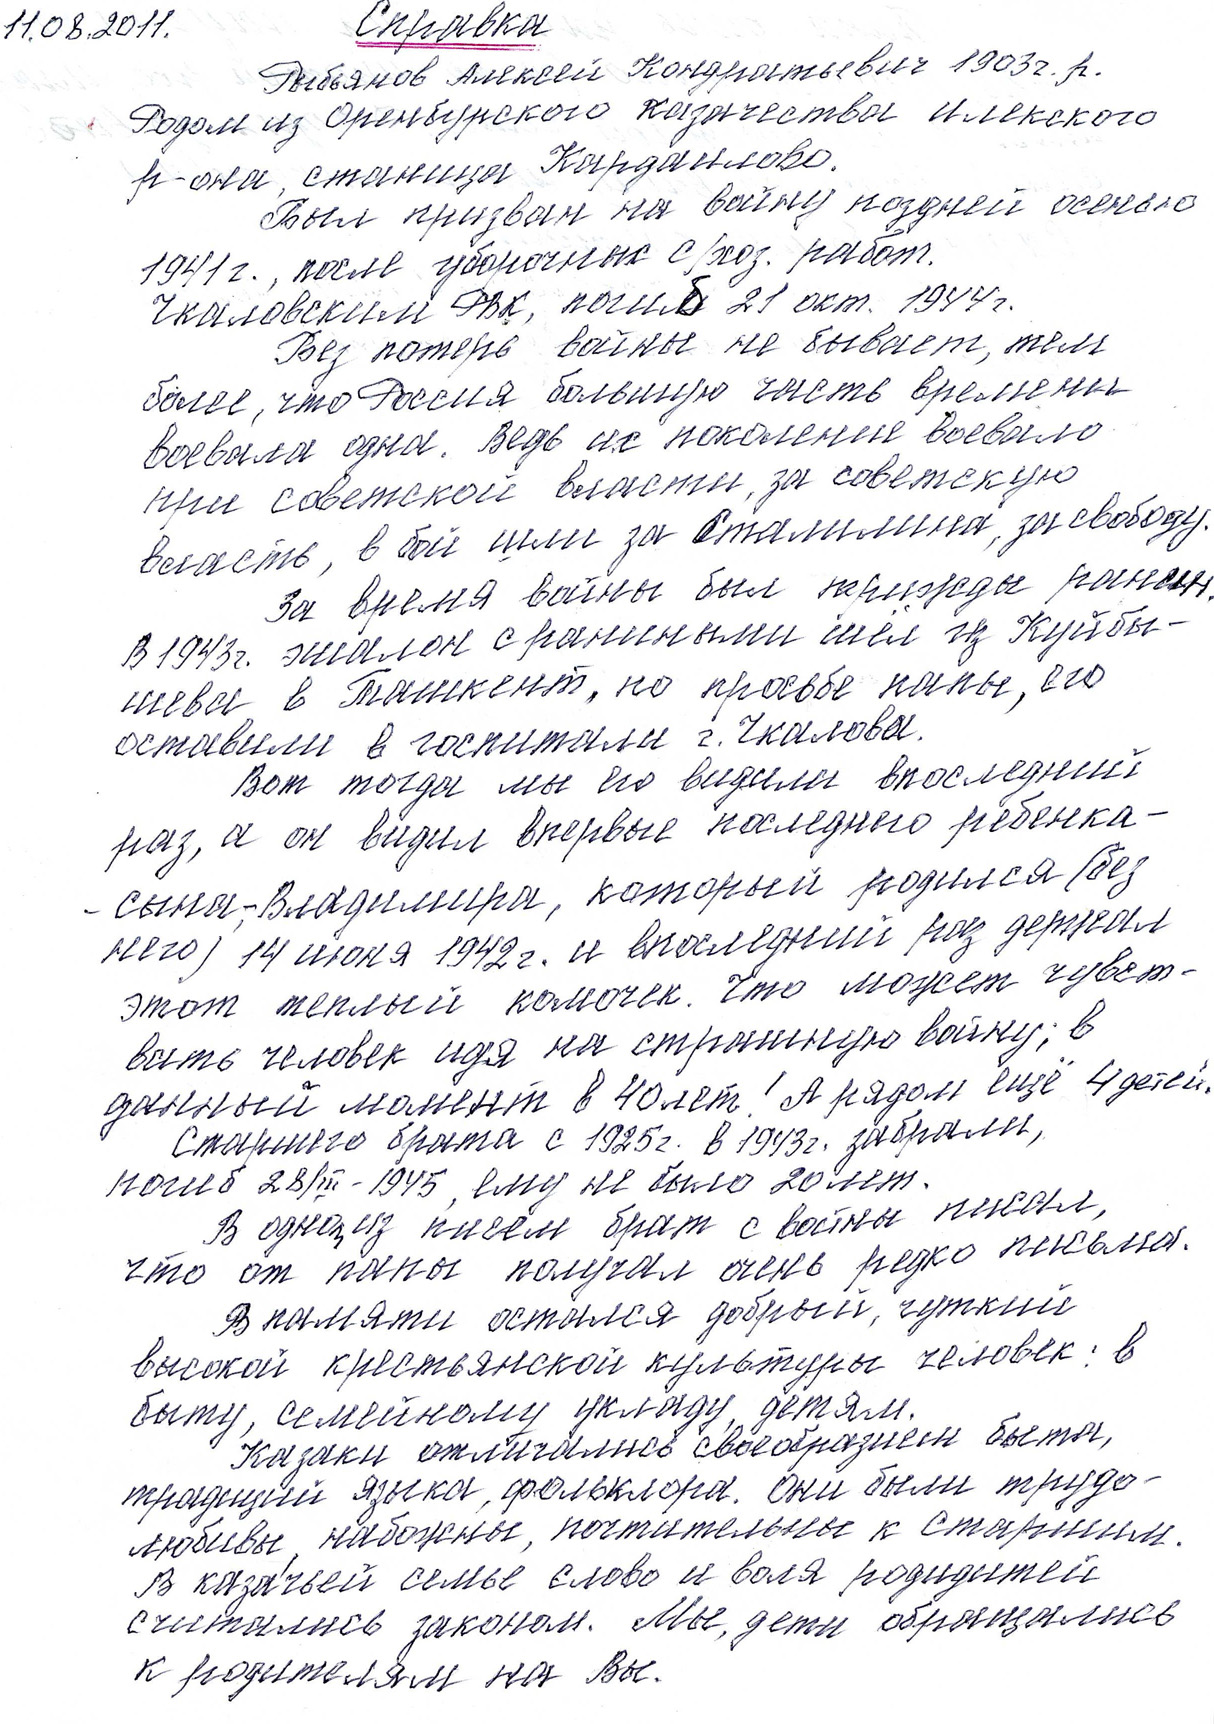 11.08.2011. Справка
Рыбьянов Алексей Кондратьевич 1903г. р.
Родом из Оренбурского казачества илекского
р-она, станица Кардаилово.
Был призван на войну поздней осенью
1941г., после уборочных с/хоз. работ.
Чкаловским РВК, погиб 21 окт. 1944г.
Без потерь войны не бывает, тем
более, что Россия большую часть времени
воевала одна. Ведь их поколение воевало
при советской власти, за советскую
власть, в бой шли за Сталилина, за свободу.
За время войны был трижды ранен.
В 1943г. эшалон с раниными шёл из Куйбы-
шева в Ташкент, по просьбе папы, его
оставили в госпитали г. Чкалова.
Вот тогда мы его видили впоследний
раз, а он видил впервые последнего ребенка-
- сына,-Владимира, который родился (без
него) 14 июня 1942г. и впоследний раз держал
этот теплый комочек. Что может чувст-
вать человек идя на страшную войну; в
данный момент в 40 лет! А рядом ещё 4 детей.
Старшего брата с 1925г. в 1943г. забрали,
погиб 28/III-1945, ему не было 20 лет.
В одно из писем брат с войны писал,
что от папы получал очень редко письма.
В памяти остался добрый, чуткий
высокой крестьянской культуры человек: в
быту, семейному укладу, детям.
Казаки отличались своеобразием быта,
традиций языка, фольклора. Они были трудо-
любивы, набожны, почтительны к старшим.
В казачьей семье слово и воля родидитей
считались законом. Мы, дети обращались
к родителям на Вы.